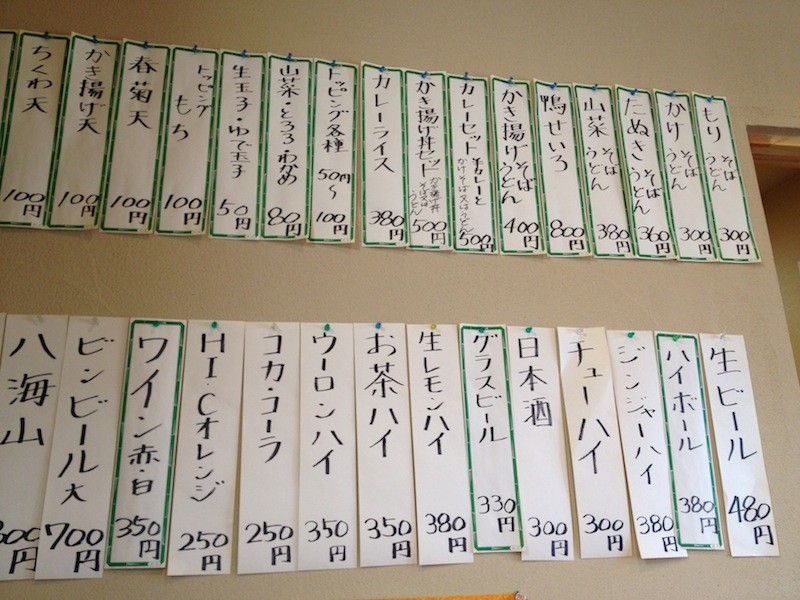 もり そば うどん 300円
かけ そば うどん 300円
たぬき そば うどん 360円
山菜 そば うどん 380円
鴨せいろ 800円
かき揚げ そば うどん 400円
カレーセット 半カレーと かけそば又はうどん 500円
かき揚げ丼セット かき揚げ丼 そば又は うどん 500円
カレーライス 380円
トッピング各種 50円〜100円
山菜・とろろ・わかめ 80円
生玉子・ゆで玉子 50円
トッピング もち 100円
春菊天 100円
かき揚げ天 100円
ちくわ天 100円
生ビール 480円
ハイボール 380円
ジンジャーハイ 380円
チューハイ 300円
日本酒 300円
グラスビール 330円
生レモンハイ 380円
お茶ハイ 350円
ウーロンハイ 350円
コカ・コーラ 250円
HI・Cオレンジ 250円
ワイン赤・白 350円
ビンビール大 700円
八海山 00円